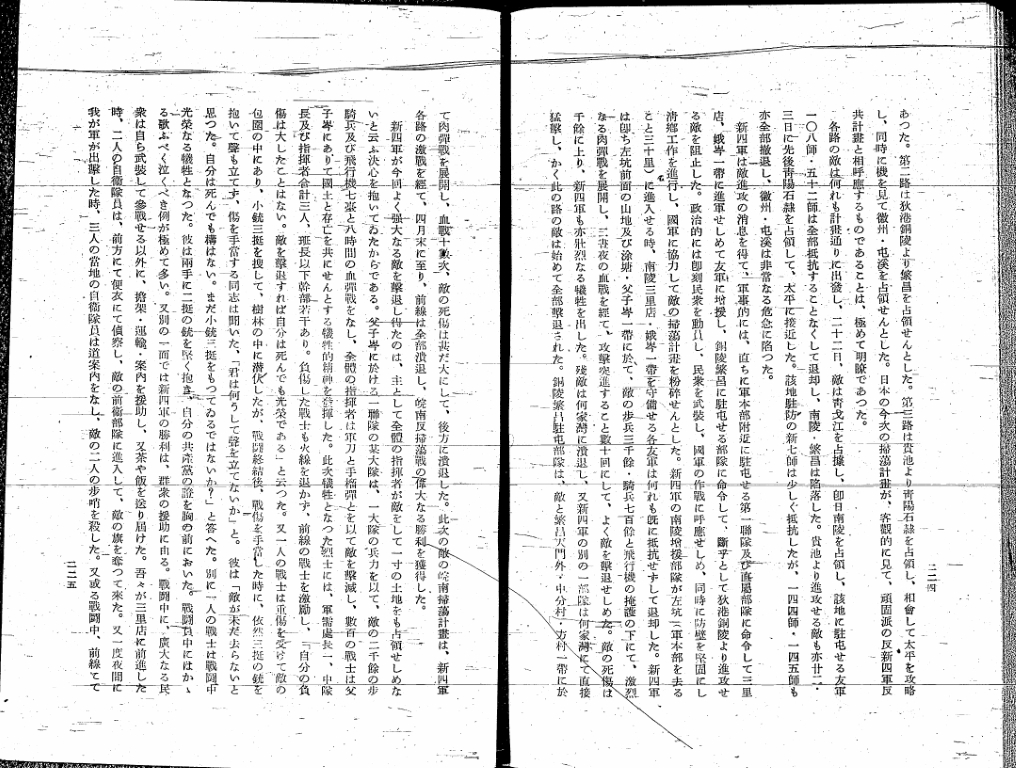 あつた。第二路は荻港銅陵より繁昌を占領せんとした。第三路は貴池より靑陽石隷を占領し、相會して太平を攻略
し、同時に機を見て徽州・屯溪を占領せんとした。日本の今次の掃蕩計畫が、客觀的に見て、頑固派の反新四軍反
共計畫と相呼應するものであることは、極めて明瞭であつた。
各路の敵は何れも計畫通りに出發し、二十二日、敵は靑弋江を占據し、卽日南陵を占領し、該地に駐屯せる友軍
一〇八師・五十二師は全部抵抗することなくして退却し、南陵・繁昌は陷落した。貴池より進攻せる敵も亦廿二・
三日に先後靑陽石隷を占領して、太平に接近した。該地駐防の新七師は少しく抵抗したが、一四四師・一四五師も
亦全部撤退し、徽州・屯溪は非常なる危急に陷つた。
新四軍は敵進攻の消息を得て、軍事的には、直ちに軍本部附近に駐屯せる第一聯隊及び直屬部隊に命令して三里
店、峨岑一帶に進軍せしめて友軍に增援し、銅陵繁昌に駐屯せる部隊に命令して、斷乎として荻港銅陵より進攻せ
る敵を阻止した。政治的には卽刻民衆を動員し、民衆を武裝し、國軍の作戰に呼應せしめ、同時に防壁を堅固にし
淸鄕工作を進行し、國軍に協力して敵の掃蕩計畫を粉碎せんとした。新四軍の南陵增援部隊が左坑（軍本部を去る
こと三十里）に進入せる時、南陵三里店・峨岑一帶を守備せる各友軍は何れも旣に抵抗せずして退却した。新四軍
は卽ち左坑前面の山地及び塗塘・父子岑一帶に於て、敵の步兵三千餘・騎兵七百餘と飛行機の掩護の下にて、激烈
なる肉彈戰を展開し、三晝夜の血戰を經て、攻擊突進すること數十回にして、よく敵を擊退せしめた。敵の死傷は
千餘に上り、新四軍も亦壯烈なる犧牲を出した。殘敵は何家灣に潰退し、又新四軍の別の一部隊は何家灣にて直接
猛擊し、かく此の路の敵は始めて全部擊退された。銅陵繁昌駐屯部隊は、敵と繁昌大門外・中分村・方村一帶に於
二二四
て肉彈戰を展開し、血戰十數次、敵の死傷は甚だ大にして、後方に潰退した。此次の敵の皖南掃蕩計畫は、新四軍
各路の激戰を經て、四月末に至り、前線は全部潰退し、皖南反掃蕩戰の偉大なる勝利を獲得した。
新四軍が今回よく強大なる敵を擊退し得たのは、主として全體の指揮者が敵をして一寸の土地をも占領せしめな
いと云ふ決心を抱いてゐたからである。父子岑に於ける一聯隊の某大隊は、一大隊の兵力を以て、敵の二千餘の步
騎兵及び飛行機七張と八時間の血彈戰をなし、全體の指揮者は軍刀と手榴彈とを以て敵を擊滅し、數百の戰士は父
子岑にありて國土と存亡を共にせんとする犧牲的精神を發揮した。此次犧牲となつた烈士には、軍需處長一、中隊
長及び指揮者合計三人、班長以下幹部若干あり。負傷した戰士も火線を退かず、前線の戰士を激勵し、「自分の負
傷は大したことはない。敵を擊退すれば自分は死んでも光榮である」と云つた。又一人の戰士は重傷を受けて敵の
包圍の中にあり、小銃三挺を搜して、樹林の中に潛伏したが、戰鬪終結後、戰傷を手當した時に、依然三挺の銃を
抱いて聲も立てず、傷を手當する同志は聞いた、「君は何うして聲を立てないか」と。彼は「敵が未だ去らないと
思つた。自分は死んでも構はない。まだ小銃三挺をもつてゐるではないか？」と答へた。別に一人の戰士は戰鬪中
光榮なる犧牲となつた。彼は兩手に二挺の銃を堅く抱き、自分の共產黨の證を胸の前においた。戰鬪負中にはかゝ
る歌ふべく泣くべき例が極めて多い。又別の一面では新四軍の勝利は、群衆の援助に由る。戰鬪中に、廣大なる民
衆は自ら武裝して參戰せる以外に、擔架・運輸・案內を援助し、又茶や飯を送り屆けた。吾々が三里店に前進した
時、二人の自衞隊員は、前方にて便衣にて偵察し、敵の前衞部隊に進入して、敵の旗を奪つて來た。又一度夜間に
我が軍が出擊した時、三人の當地の自衞隊員は道案內をなし、敵の二人の步哨を殺した。又或る戰鬪中、前線にて
二二五